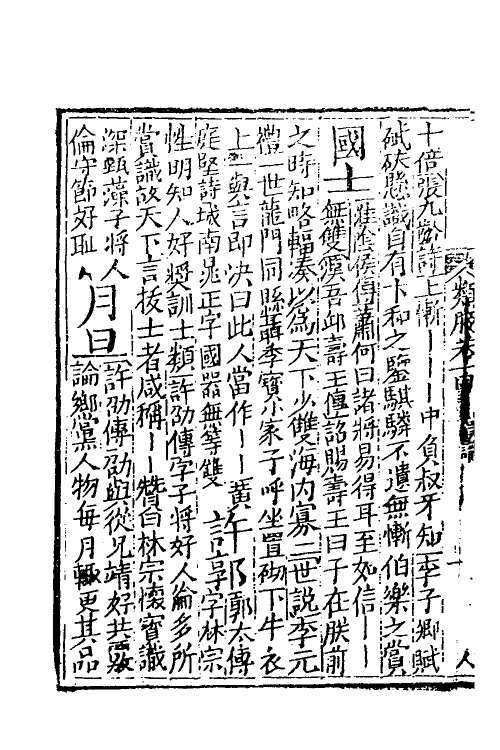 十倍張九齡詩上慚｜｜｜中負叔牙知李子卿賦
碔砆懸識自有卞和之鑒騏驎不遺無慚伯樂之賞
國士淮陰侯傳蕭何曰諸將易得耳至如信｜｜
無雙虞吾丘壽王傳詔賜壽王曰子在朕前
之時知略輻湊以為天下少雙海內寡二世說李元
禮一世龍門同縣聶季寶小家子呼坐置砌下牛衣
上一與言即决曰此人當作｜｜黄
庭堅詩城南晁正字國器無等雙許郭郭太傳
太字林宗
性明知人好獎訓士類許劭傳字子將好人倫多所
賞識故天下言拔士者咸稱｜｜贊曰林宗懷寶識
深甄藻子將人
倫守節好恥月旦許劭傳劭與從兄靖好共覈
論鄉黨人物每月輒更其品
人